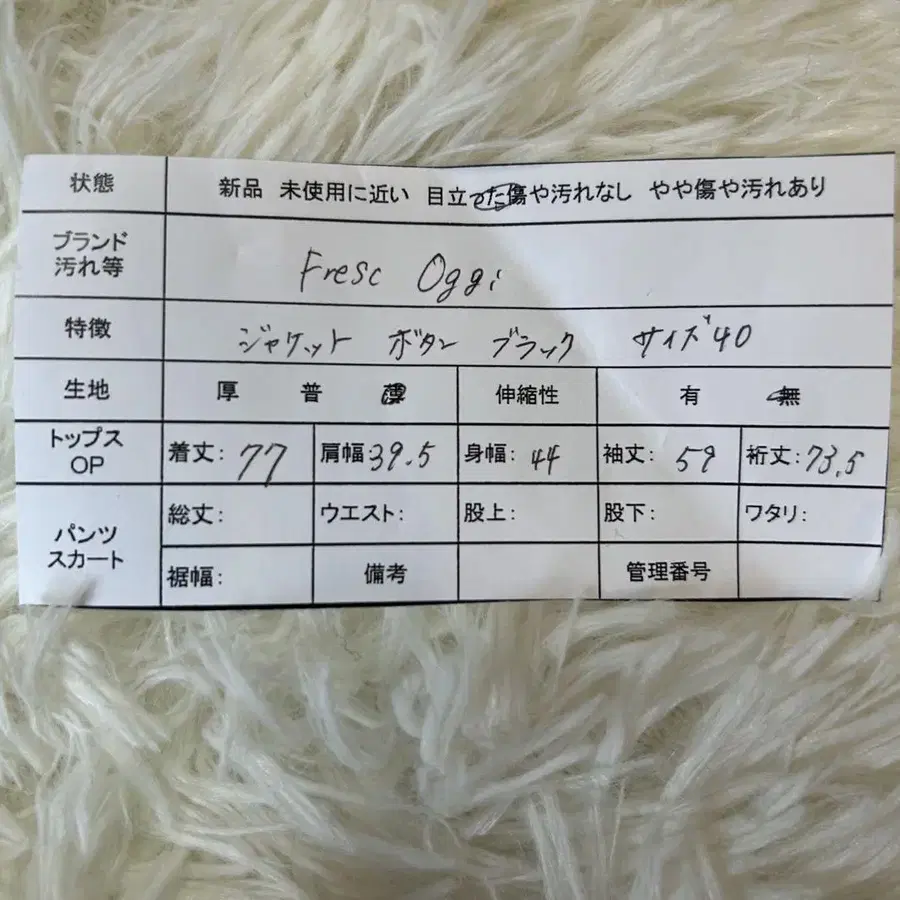 状態 新品 未使用に近い 目立った傷や汚れなし やや傷や汚れあり
ブランド
汚れ等
Fresc Oggi
特徴 ジャケット ボタン ブラック サイズ40
生地 厚 普 薄 伸縮性 有 無
トップス
OP
着丈: 77 肩幅: 39.5 身幅: 44 袖丈: 59 裄丈: 73.5
パンツ
スカート
総丈: ウエスト: 股上: 股下: ワタリ:
裾幅: 備考 管理番号